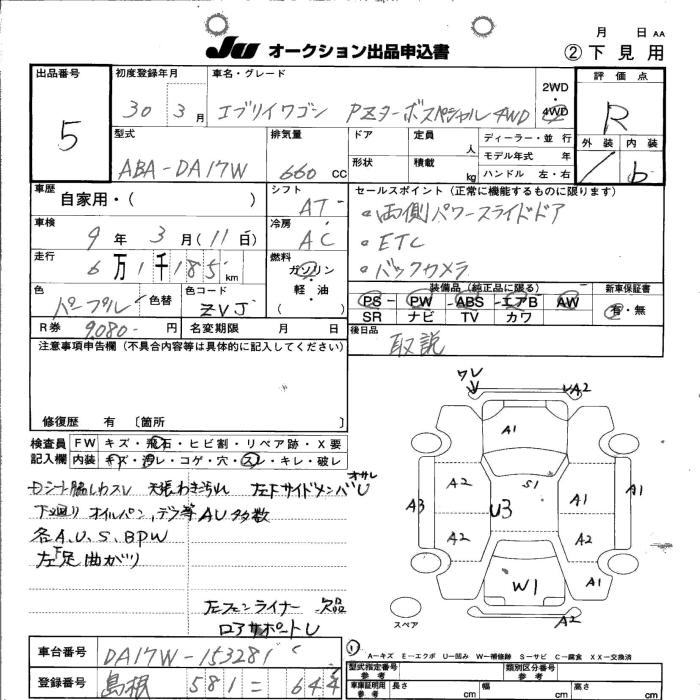 月 日 AA
JU オークション出品申込書 ②下見用
出品番号 5
初度登録年月 30 3月
車名・グレード エブリイワゴン PZターボスペシャル 4WD
2WD・4WD
評価点 R
外装 内装 b
型式 ABA-DA17W
排気量 660 CC
ドア 形状
定員 人
積載 kg
ディーラー・並行
モデル年式 年
ハンドル 左・右
車歴 自家用・( )
シフト AT
セールスポイント(正常に機能するものに限ります)
・両側パワースライドドア
・ETC
・バックカメラ
車検 9年 3月(11日)
冷房 AC
走行 6万1千185km
燃料 ガソリン・軽・油 ( )
色 パープル 色替
色コード ZVJ
装備品(純正品に限る) 新車保証書
PS PW ABS エアB AW 有・無
SR ナビ TV カワ
R券 9,080-円
名変期限 月 日
後日品 取説
注意事項申告欄(不具合内容等は具体的に記入してください)
修復歴 有 〔箇所 〕
検査員記入欄
FW キズ・飛石・ヒビ割・リペア跡・X要
内装 キズ・汚レ・コゲ・穴・スレ・キレ・破レ
Dシート脇しわスレ 天張わきよごれ 左Fサイドメンバ U オサレ
下廻り オイルパン、デフ等AU多数
各A、U、S、BPW
左F足曲がり
左フェンライナー 欠品
ロアサポート U
ワレ
A2
A1
S1
A2
A3
U3
A1
A1
A2
A2
W1
A1
A2
スペア
A-キズ E-エクボ U-凹み W-補修跡 S-サビ C-腐食 XX-交換済
車台番号 DA17W-153281
登録番号 島根 581 = 644
型式指定番号 参考
類別区分番号 参考
車庫証明用 参考 長さ cm 幅 cm 高さ cm